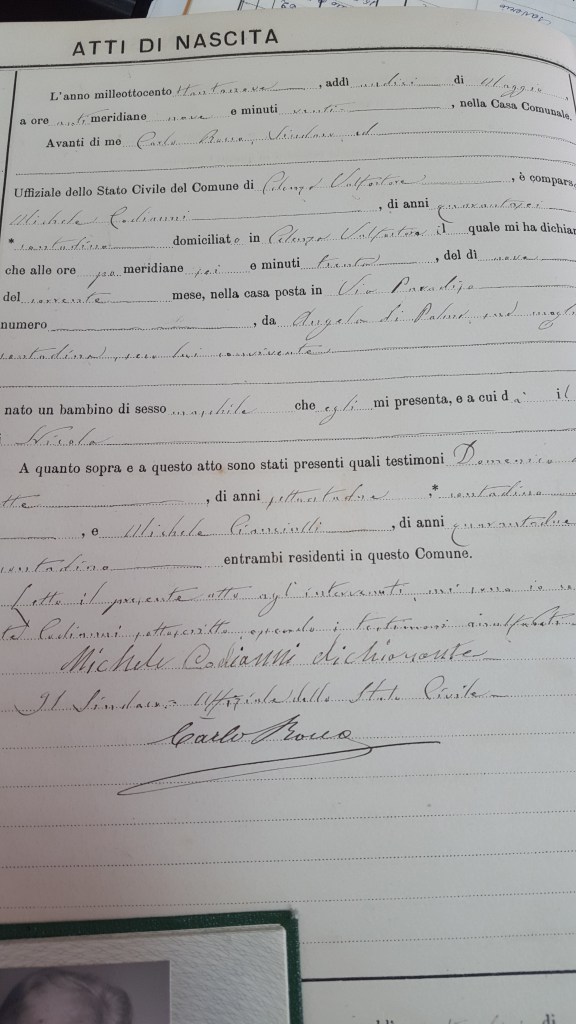 ATTI DI NASCITA
L'anno milleottocento ottantanove, addì undici di Maggio,
a ore anti meridiane nove e minuti venti, nella Casa Comunale.
Avanti di me Carlo Rossa, Sindaco ed
Uffiziale dello Stato Civile del Comune di Celenza Valfortore, è compars
Michele Codianni, di anni quarantasei
* contadino domiciliato in Celenza Valfortore il quale mi ha dichiar
che alle ore po meridiane sei e minuti trenta, del dì nove
del corrente mese, nella casa posta in Via Paradiso
numero, da Angela di Palma, sua mogli
contadina, seco lui convivente
nato un bambino di sesso maschile che egli mi presenta, e a cui dà il
Nicola
A quanto sopra e a questo atto sono stati presenti quali testimoni Domenico
tte, di anni settantadue, * contadino
, e Michele Cianciulli, di anni quarantadue
contadino entrambi residenti in questo Comune.
Letto il presente atto agl'intervenuti, mi sono io
Codianni sottoscritto, essendo i testimoni analfabeti
Michele Codianni dichiarante
Il Sindaco = Uffiziale dello Stato Civile
Carlo Rossa